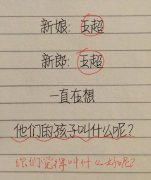 新娘：王超
新郎：王超
一直在想
他们的孩子叫什么呢？
你们觉得叫什么好呢？